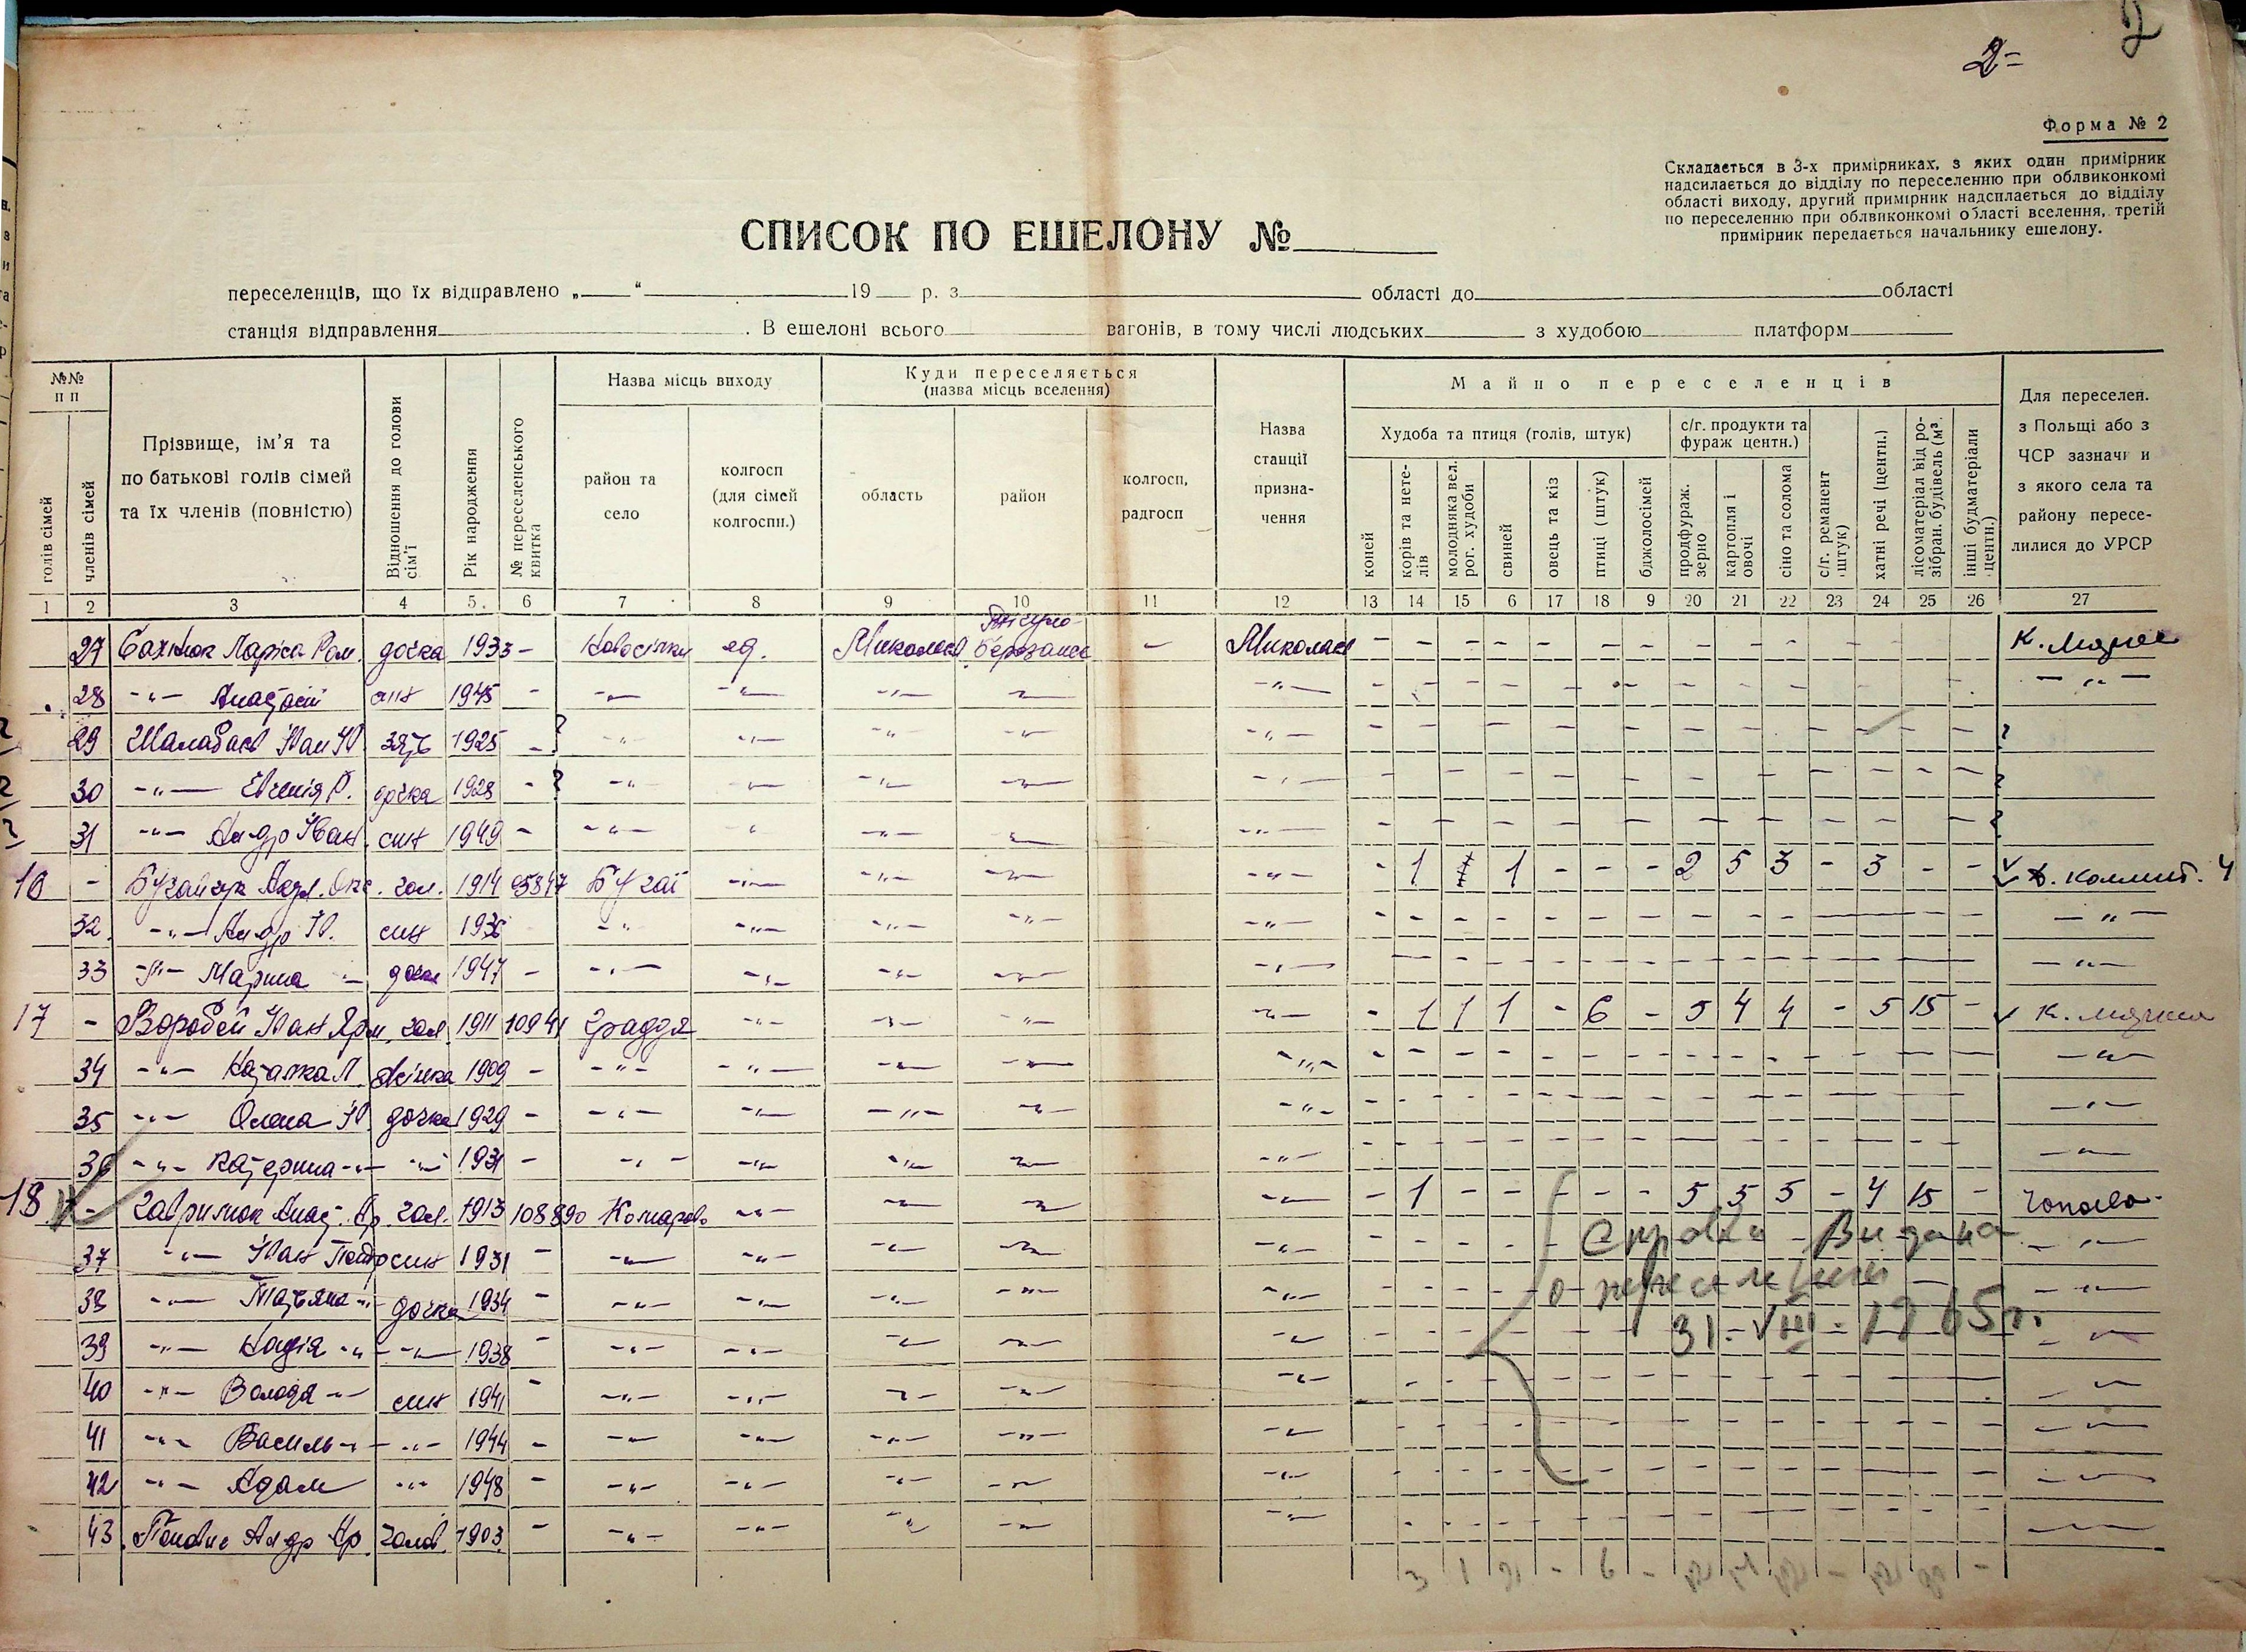 2-
2
Форма № 2
Складається в 3-х примірниках, з яких один примірник
надсилається до відділу по переселенню при облвиконкомі
області виходу, другий примірник надсилається до відділу
по переселенню при облвиконкомі області вселення, третій
примірник передається начальнику ешелону.
СПИСОК ПО ЕШЕЛОНУ №
переселенців, що їх відправлено „ “ 19 р. з області до області
станція відправлення . В ешелоні всього вагонів, в тому числі людських з худобою платформ
№№ п п
голів сімей
членів сімей
Прізвище, ім’я та
по батькові голів сімей
та їх членів (повністю)
Відношення до голови сім’ї
Рік народження
№ переселенського квитка
Назва місць виходу
район та село
колгосп (для сімей колгоспн.)
Куди переселяється
(назва місць вселення)
область
район
колгосп, радгосп
Назва станції призна-чення
Майно переселенців
Худоба та птиця (голів, штук)
коней
корів та нете-лів
молодняка вел. рог. худоби
свиней
овець та кіз
птиці (штук)
бджолосімей
с/г. продукти та фураж центн.)
продфураж. зерно
картопля і овочі
сіно та солома
с/г. реманент штук)
хатні речі (центн.)
лісоматеріал від ро-зібран. будівель (м³.
інші будматеріали центн.)
Для переселен.
з Польщі або з
ЧСР зазначи и
з якого села та
району пересе-
лилися до УРСР
1 2 3 4 5. 6 7 8 9 10 11 12 13 14 15 6 17 18 9 20 21 22 23 24 25 26 27
27 Лариса Ром. дочка 1933 - Новосілки од. Миколаєв Березанск - Миколаєв - - - - - - - - - -
28 -"- син 1945 - -"- -"- -"- -"- -"-
29 Шалабаєв Іван Ю. зять 1925 - ? -"- -"- -"- -"- -"- ?
30 -"- Евгенія Р. дочка 1928 - ? -"- -"- -"- -"- -"- ?
31 -"- Андр Іван син 1949 - -"- -"- -"- -"- -"- ?
16 - гол. 1914 05847 Бугаї -"- -"- -"- -"- - 1 1 - - - 2 5 3 - 3 - -
32 -"- Андр Ю. син 1936 -"- -"- -"- -"- -"- -"-
33 -"- Марина -"- дочка 1947 - -"- -"- -"- -"- -"- -"-
17 - Воробей Іван Ярм. гол. 1911 10941 Граддя -"- -"- -"- -"- - 1 1 1 - 6 - 5 4 4 - 5 15 -
34 -"- Наталка Л. жінка 1909 - -"- -"- -"- -"- -"- -"-
35 -"- Олена Ю. дочка 1929 - -"- -"- -"- -"- -"- -"-
36 -"- Катерина -"- -"- 1931 - -"- -"- -"- -"- -"- -"-
18 - Гаврилюк Анаст. Ар. гол. 1913 108890 Комарово -"- -"- -"- -"- - 1 - - - - - 5 5 5 - 4 15 -
37 -"- Іван Петр син 1931 - -"- -"- -"- -"- -"- -"-
38 -"- Татьяна -"- дочка 1934 - -"- -"- -"- -"- -"- -"-
39 -"- Надія -"- -"- 1938 - -"- -"- -"- -"- -"- -"-
40 -"- Володя -"- син 1941 - -"- -"- -"- -"- -"- -"-
41 -"- Василь -"- -"- 1944 - -"- -"- -"- -"- -"- -"-
42 -"- Адам -"- 1948 - -"- -"- -"- -"- -"- -"-
43 Андр Ар. голов. 1903 - -"- -"- -"- -"- -"- -"-
Справка Видана
о переселении
31-VIII-1965г.